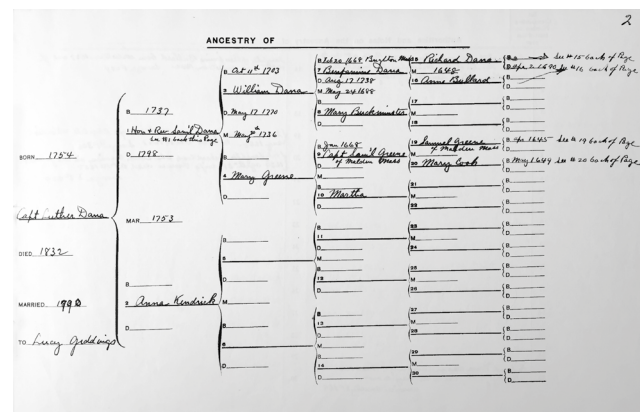 2
ANCESTRY OF
BORN 1754
Capt Luther Dana
DIED 1832
MARRIED
TO Lucy Giddings
B. 1737
1 Hon & Rev Sam'l Dana
See #1 back this Page
D. 1798
MAR. 1753
B.
2 Anna Kendrick
D.
B. Oct 11th 1703
3 William Dana
D. May 17 1770
M. May 1736
B.
4 Mary Greene
D.
B.
5
D.
M.
B.
6
D.
B. Feb 20 1660
7 Benjamine Dana
D. Aug 17 1738
M. May 24 1688
B.
8 Mary Buckminster
D.
B. Jan 1668
9 Capt Sam'l Greene
of Malden Mass
M.
B.
10 Martha
D.
B.
11
D.
M.
B.
12
D.
B.
13
D.
M.
B.
14
D.
15 Richard Dana
M. 1648
16 Anne Bullard
17
M.
18
19 Samuel Greene
of Malden Mass
20 Mary Cook
21
M.
22
23
M.
24
25
M.
26
27
M.
28
29
M.
30
B. See #15 back of Page
D. Apr 2 1690 See #16 back of Page
B. 1645 See #19 back of Page
B. May 1649 See #20 back of Page